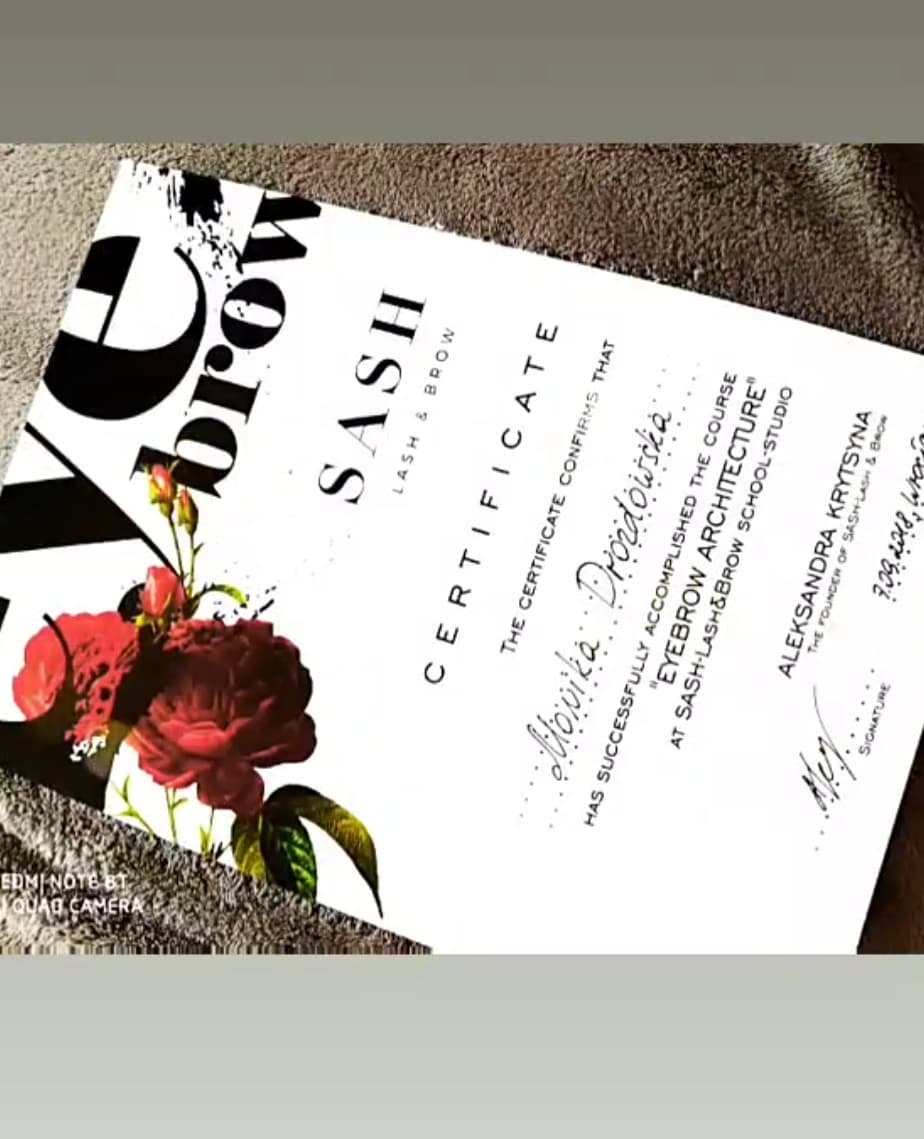 eye
brow
SASH
LASH & BROW
CERTIFICATE
THE CERTIFICATE CONFIRMS THAT
Monika Drozdowska
HAS SUCCESSFULLY ACCOMPLISHED THE COURSE
"EYEBROW ARCHITECTURE"
AT SASH-LASH&BROW SCHOOL-STUDIO
ALEKSANDRA KRYTSYNA
THE FOUNDER OF SASH-LASH & BROW
SIGNATURE
7.09.2018,
EDMI NOTE 8T
QUAD CAMERA